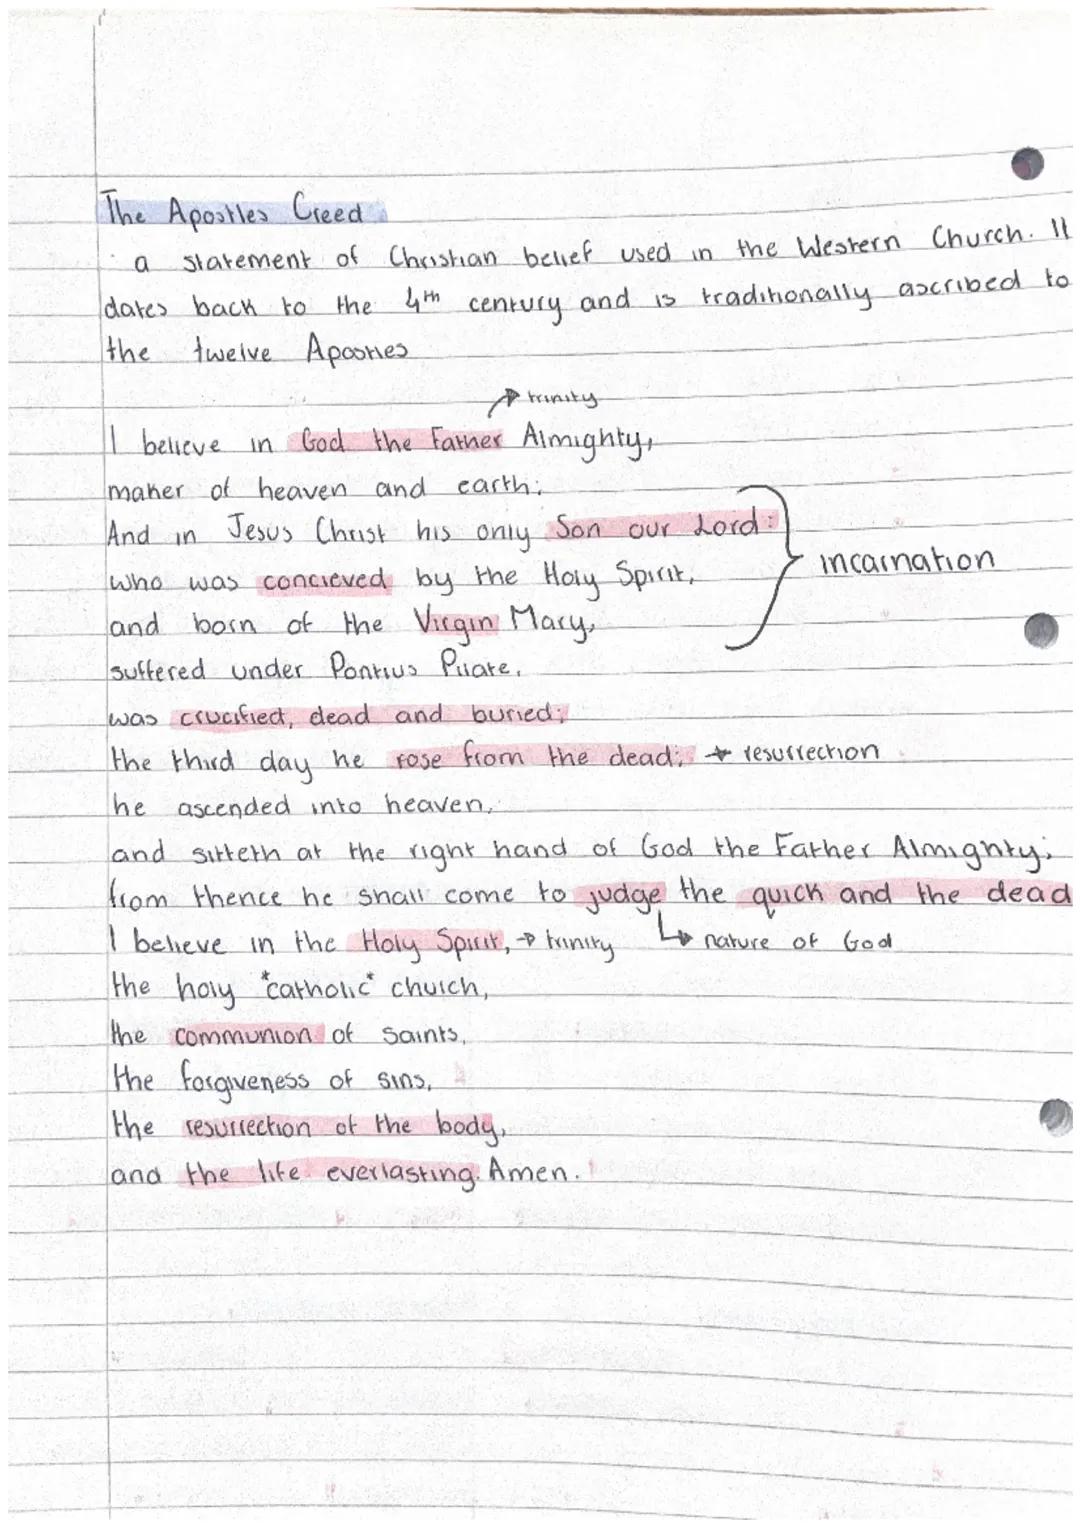 The Apostles Creed
· a statement of Christian belief used in the Western Church. It
dates back to the 4th century and is traditionally ascribed to
the twelve Apostles
→ trinity
I believe in God the Father Almighty,
maker of heaven and earth;
And in Jesus Christ his only Son our Lord:
who was concieved by the Holy Spirit,
incarnation
and born of the Virgin Mary,
suffered under Pontius Pilate,
was crucified, dead and buried;
the third day he rose from the dead; → resurrection
he ascended into heaven,
and sitteth at the right hand of God the Father Almighty;
from thence he shall come to judge the quick and the dead
I believe in the Holy Spirit, → trinity ↳ nature of God
the holy *catholic* church,
the communion of saints,
the forgiveness of sins,
the resurrection of the body,
and the life everlasting. Amen.